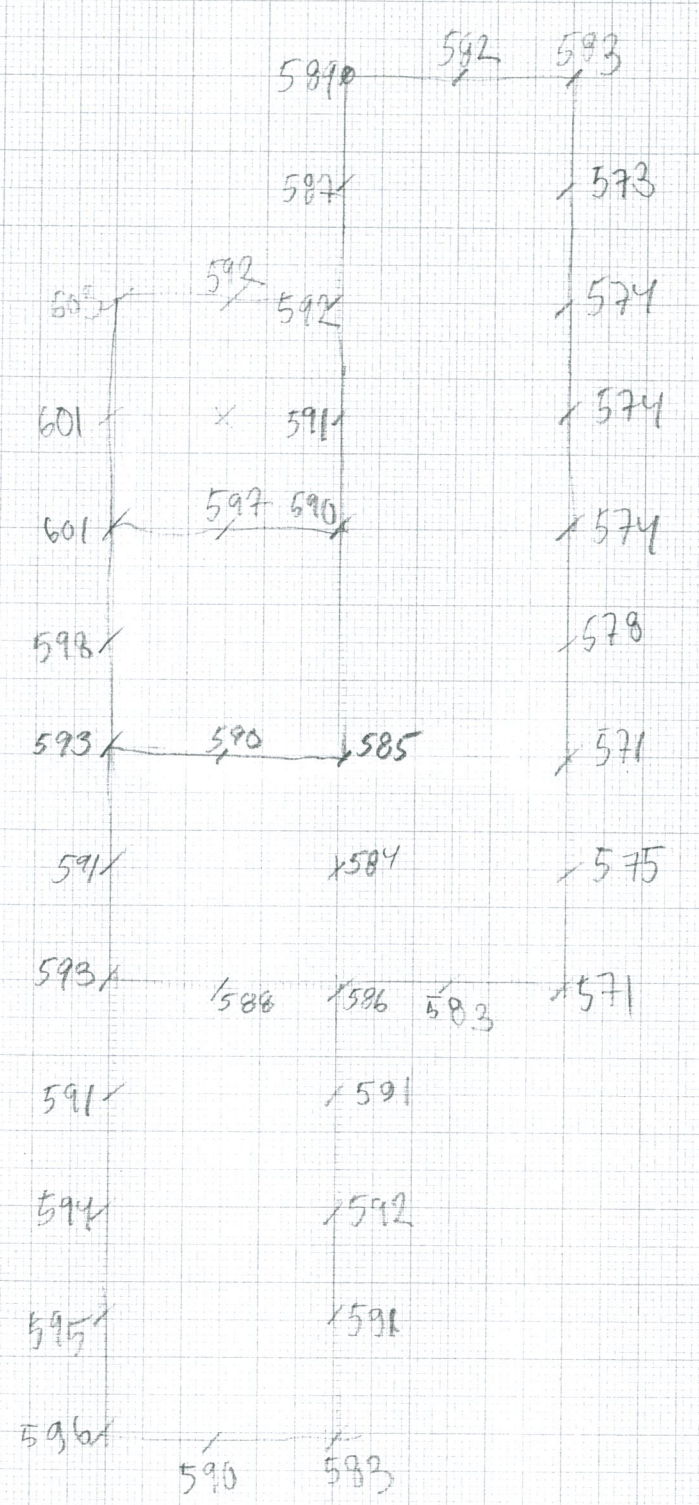 589 582 583
587 573
592
603 592 574
601 591 574
597 590
601 574
598 578
593 590 585 571
591 584 575
593 588 586 583 571
591 591
594 592
595 591
596
590 583